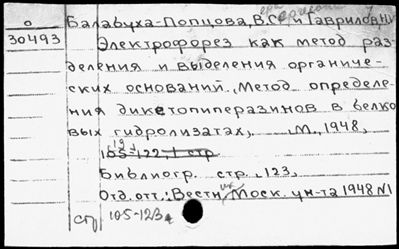 о Балабуха-Попцова, В.С. и Гаврилов, Н.И
30493 Электрофорез как метод раз-
деления и выделения органиче-
ских оснований. Метод определе-
ния дикетопиперазинов в белко
вых гидролизатах, М., 1948,
105-122, 1 стр
Библиогр. стр. 123,
Отд. отт.: Вестн. Моск. ун-та 1948 N1
стр 105-123